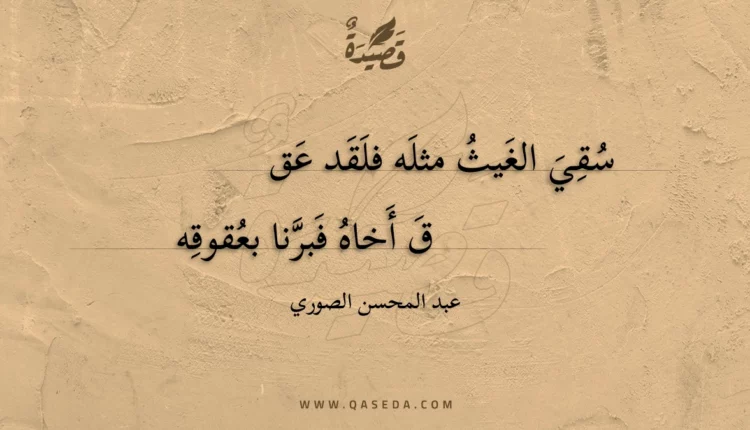 قَصِيدَةٌ
سُقِيَ الغَيثُ مثلَه فلَقَد عَق
قَ أَخاهُ فَبرَّنا بعُقوقِه
عبد المحسن الصوري
WWW.QASEDA.COM